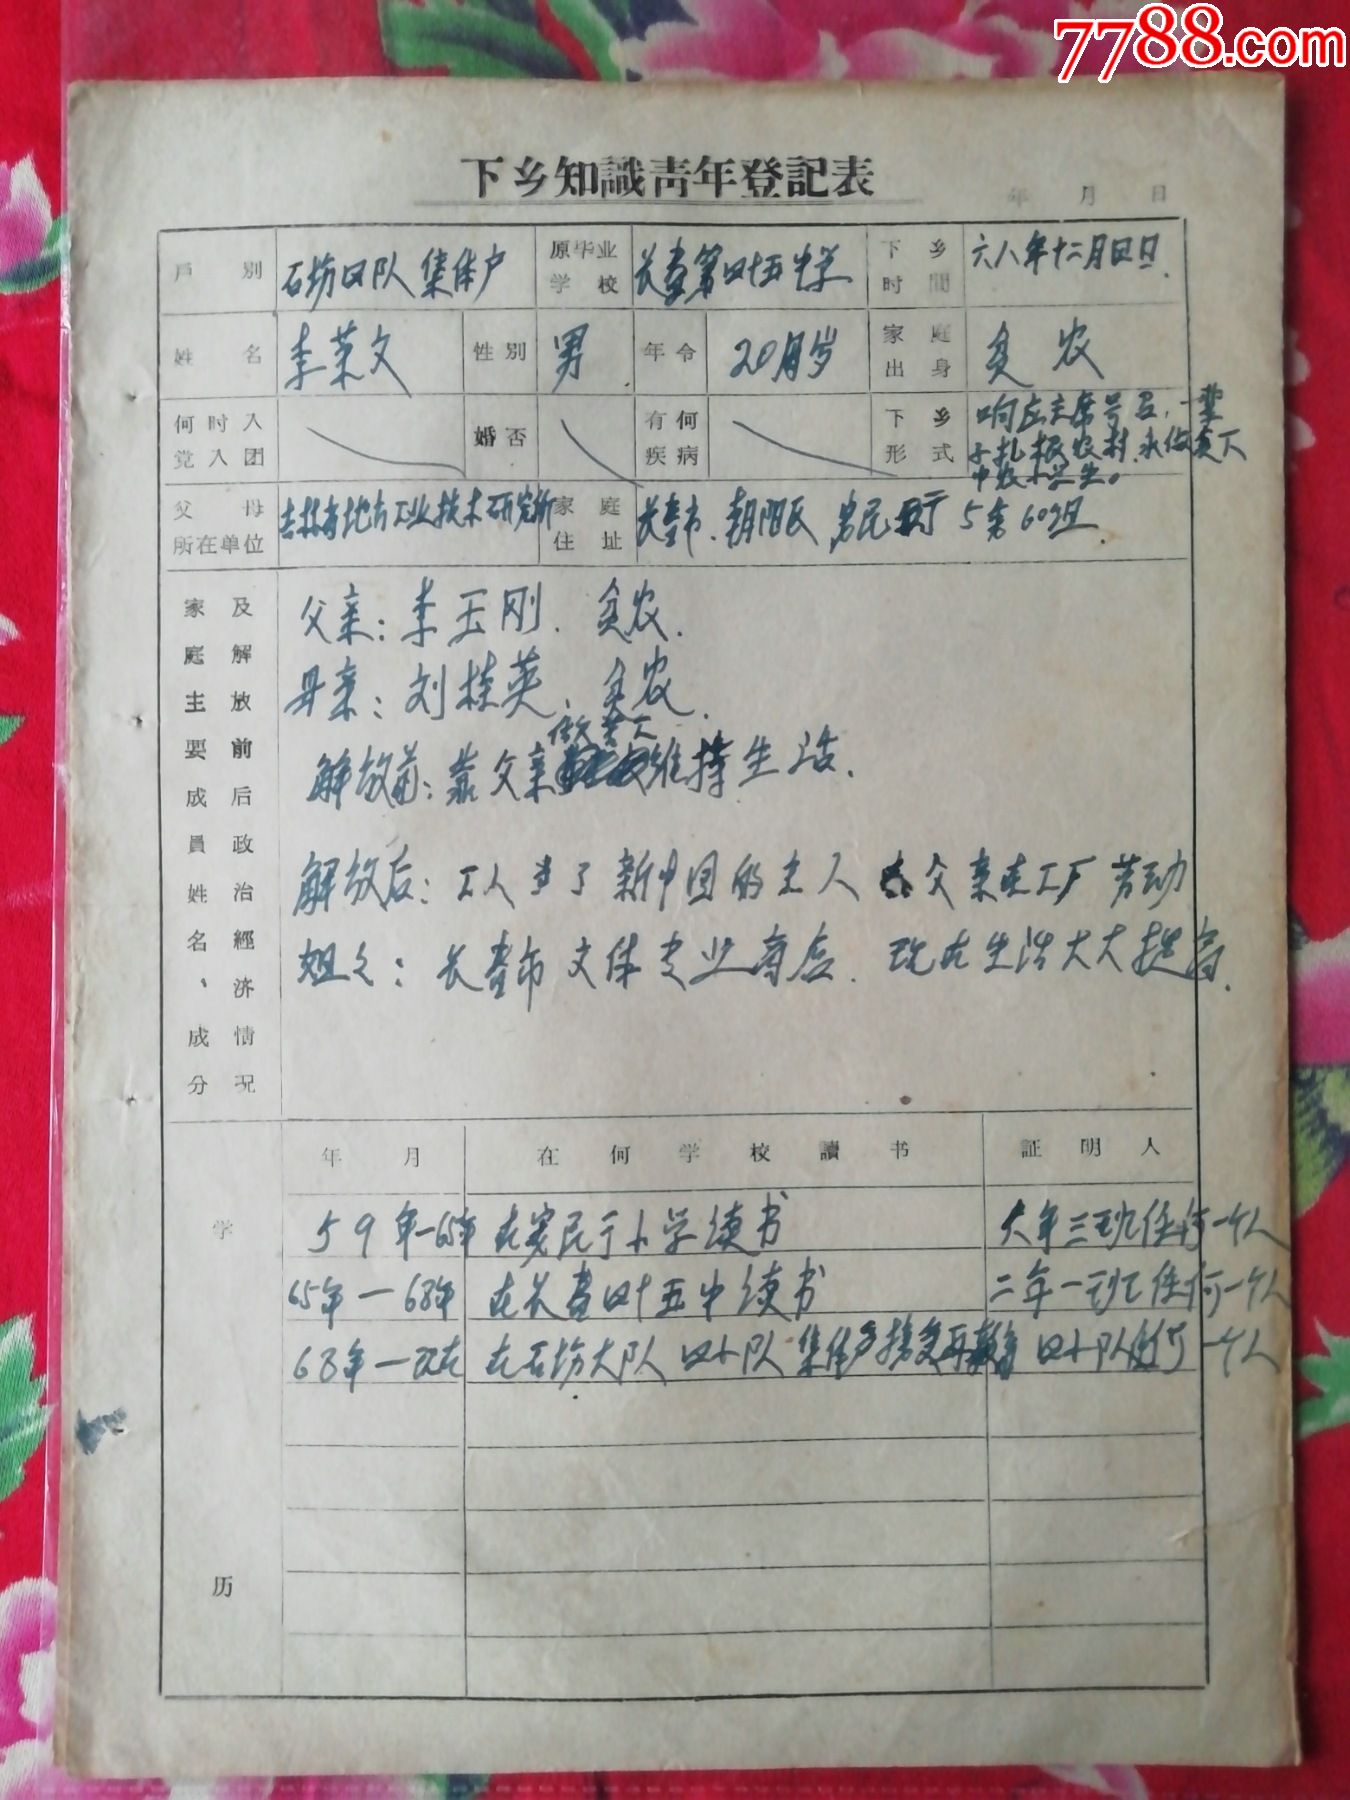 7788.com
下乡知識青年登記表
年 月 日
戶別 石坊四队集体户 原毕业学校 长春第四十五中学 下乡时間 六八年十二月四日.
姓名 李荣文 性別 男 年令 20月岁 家庭出身 贫农
何时入党入团 婚否 有何疾病 下乡形式 响应主席号召,一辈子扎根农村.永做贫下中农小学生。
父母所在单位 吉林省地方工业技术研究所 家庭住址 长春市.朝阳区,
家庭主要成員姓名、成分及解放前后政治經济情况
父亲:李玉刚.贫农.
母亲:刘桂英、贫农.
解放前:靠父亲做苦工维持生活.
解放后:工人当了新中国的主人 父亲在工厂劳动
姐文:长春市文体专业商店.现在生活大大提高.
学历
年月 在何学校讀书 証明人
59年-65年 在 小学读书 六年三班任何一个人
65年-68年 在长春四十五中读书 二年一班任何一个人
68年-现在 在石坊大队四小队集体户接受再教育 四小队任何一个人